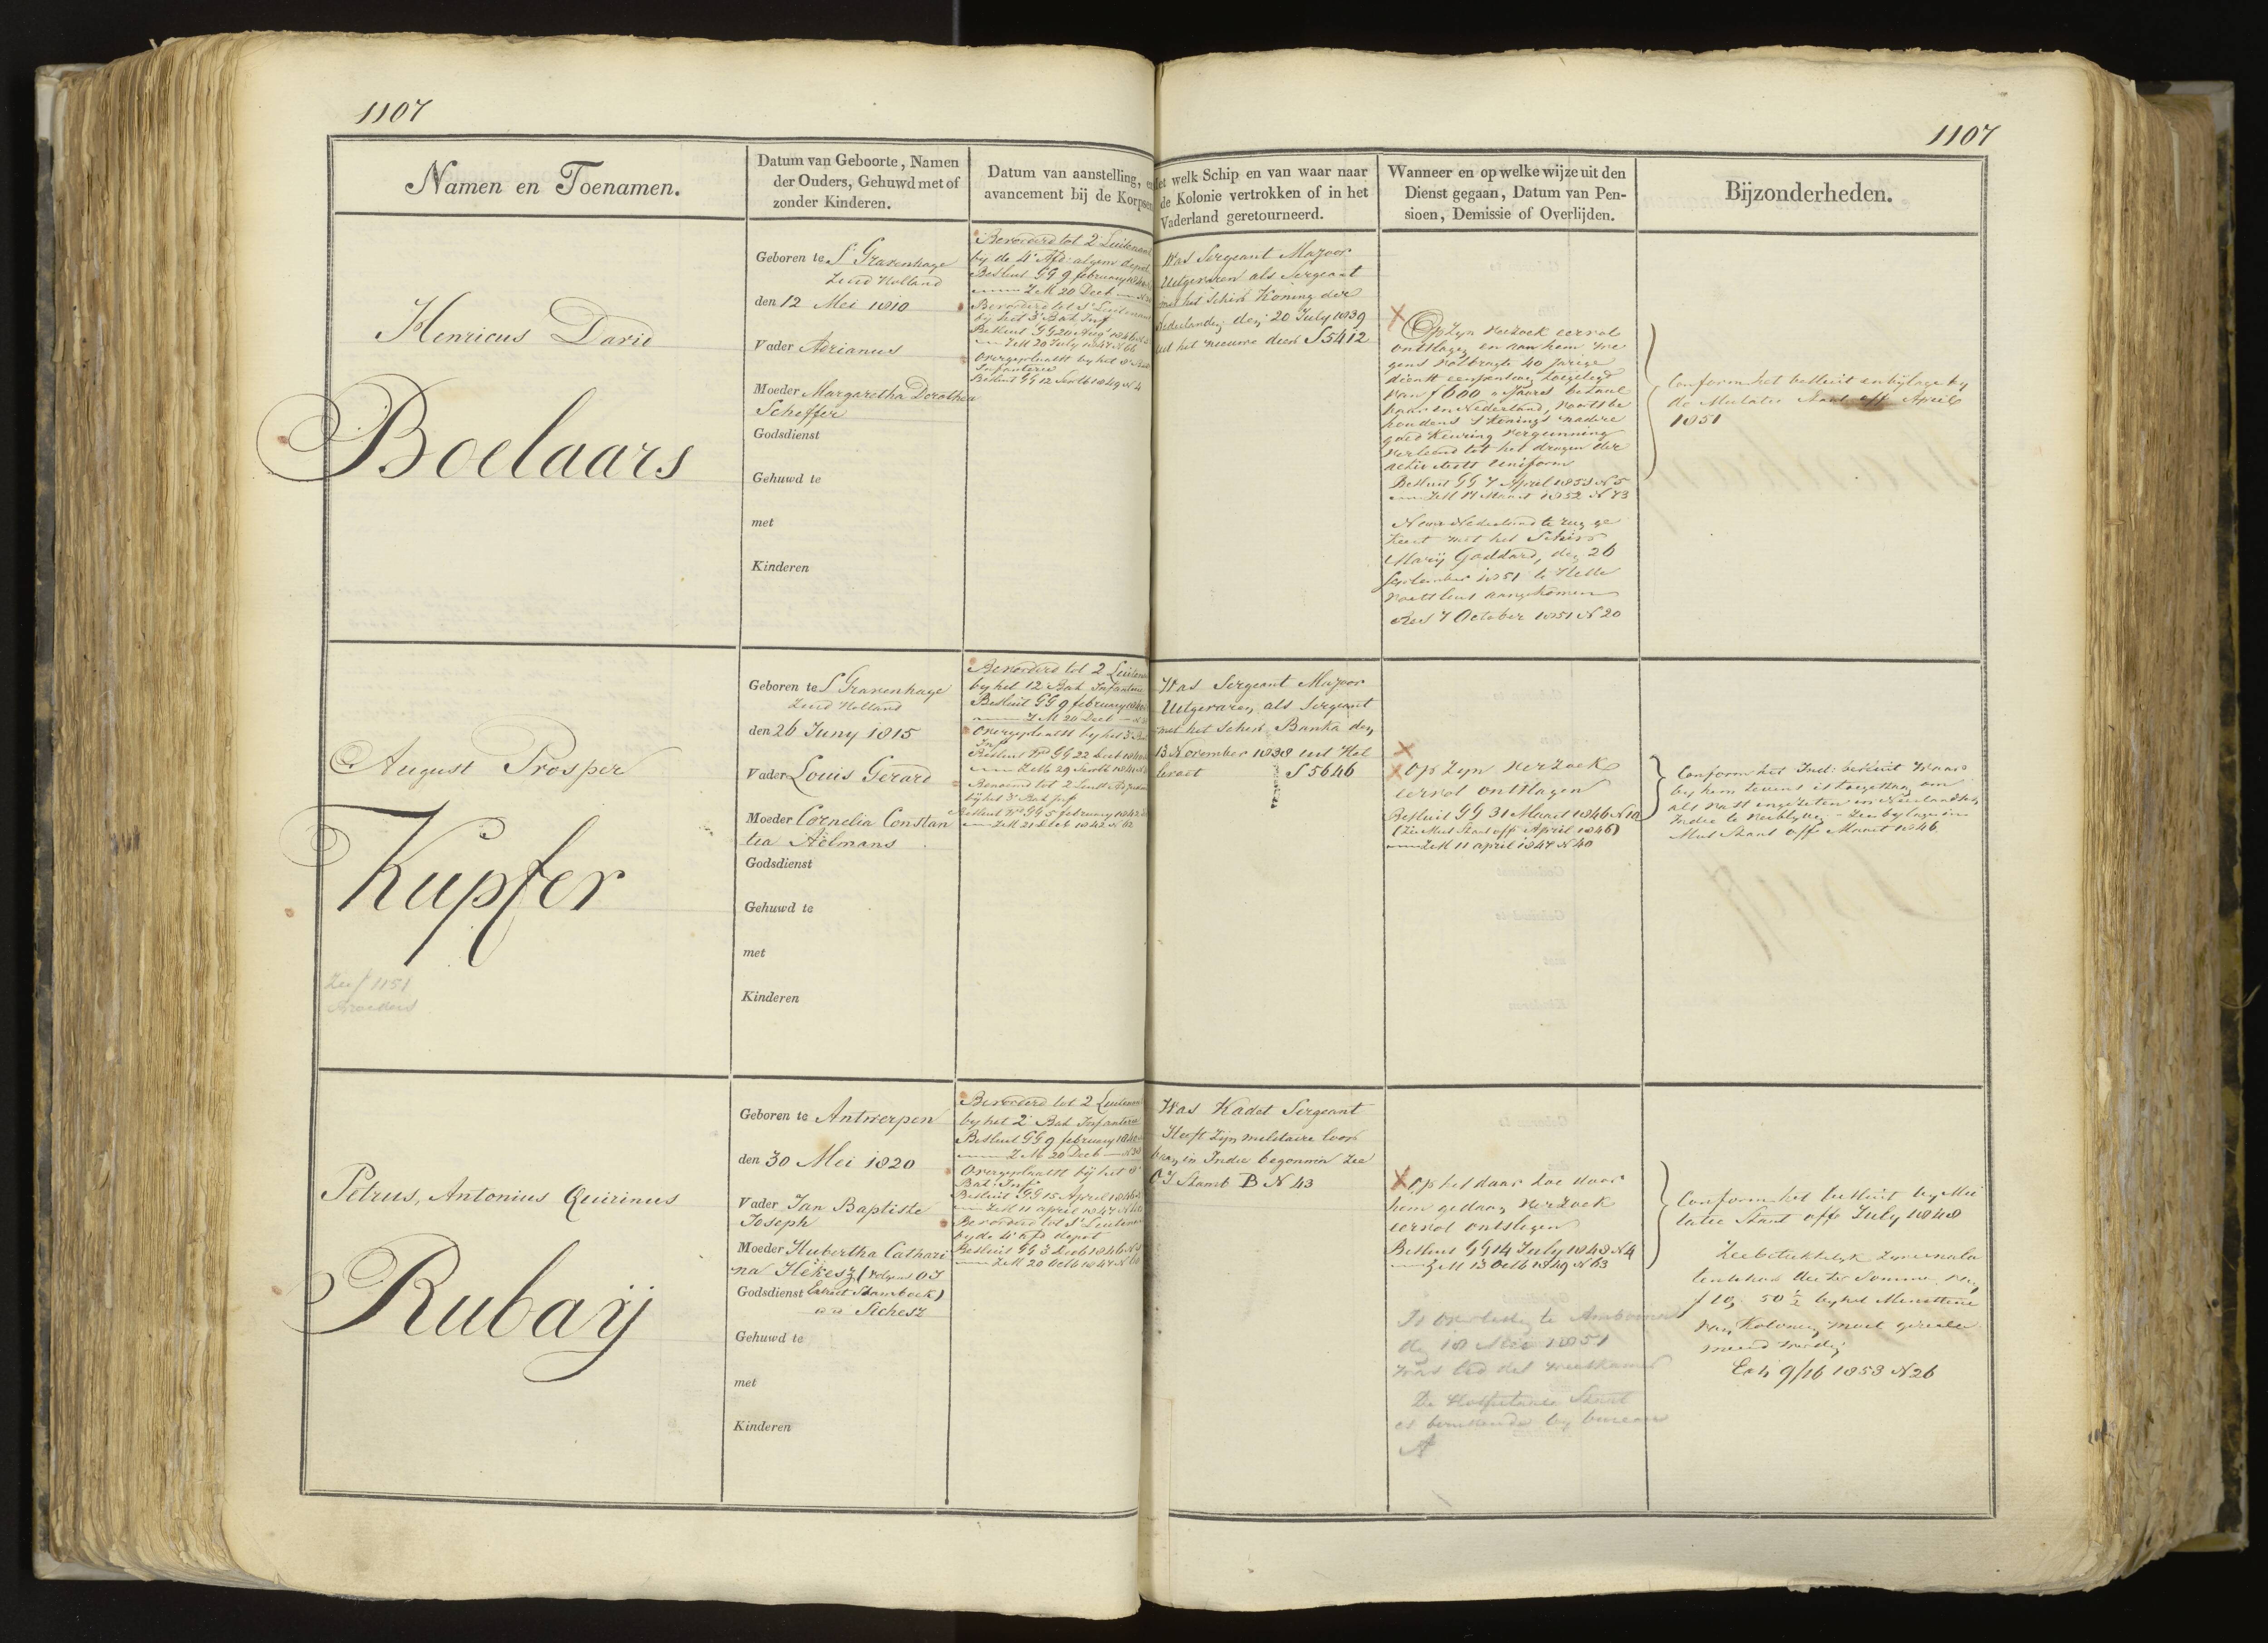 1107
1107
Namen en Toenamen.
Datum van Geboorte, Namen
der Ouders, Gehuwd met of
zonder Kinderen.
Datum van aanstelling, en
avancement bij de Korpsen
Met welk Schip en van waar naar
de Kolonie vertrokken of in het
Vaderland geretourneerd.
Wanneer en op welke wijze uit den
Dienst gegaan, Datum van Pen-
sioen, Demissie of Overlijden.
Bijzonderheden.
Henricus David
Boelaars
Geboren te S Gravenhage
Zuid Holland
den 12 Mei 1810
Vader Adrianus
Moeder Margaretha Dorothea
Scheffer
Godsdienst
Gehuwd te
met
Kinderen
Bevorderd tot 2 Luitenant
by de 4e Afd: algem depot
Besluit GG 9 february 1840
ZM 20 Decb
Bevorderd tot 1e Luitenant
bij het 3e Bat Inf
Besluit GG 20 Aug 1846
ZM 20 July 1847 N 66
Overgeplaatst by het 8
Infanterie
Besluit GG 12 Septb 1849 N 4
Was Sergeant Majoor
Uitgevaren als Sergeant
met het Schip Koning der
Nederlanden den 20 July 1839
uit het nieuwe diep S 5412
Op zyn verzoek eervol
ontslagen en aan hem we
gens volbragte 40 jarige
dienst een pensioen toegelegd
van f 600 's jaars betaal
baar in Nederland, voorts be
houdens 's Konings nadere
goed keuring vergunning
verleend tot het dragen der
activiteits uniform
Besluit GG 7 April 1851 N 5
ZM 17 Maart 1852 N 73
Naar Nederland te rug ge
keert met het Schip
Marij Goddard, den 26
September 1851 te Helle
voetsluis aangekomen
Res 7 October 1851 N 20
Conform het besluit en bylage by
de Mutatie Staat off April
1851
August Prosper
Kupfer
Zie f 1151
Broeders
Geboren te S Gravenhage
Zuid Holland
den 26 Juny 1815
Vader Louis Gerard
Moeder Cornelia Constan
tia Aelmans
Godsdienst
Gehuwd te
met
Kinderen
Bevorderd tot 2 Luitenant
by het 12 Bat Infanterie
Besluit GG 9 february 1840
ZM 20 Decb
Overgeplaatst by het 3 Bat
Inf
Besluit GG 22 1840
ZM 29 Septb 1841
Benoemd tot 2 Luit Adjudant
bij het 3 Bat Inf
Besluit GG 5 february 1842
ZM 21 Decb 1842 N 62
Was Sergeant Majoor
Uitgevaren als Sergeant
met het Schip Banka den
13 November 1838 uit Hel
levoet S 5646
Op zyn verzoek
eervol ontslagen
Besluit GG 31 Maart 1846 N 10
(Zie Mut Staat off April 1846)
ZM 11 april 1847 N 40
Conform het Ind: besluit waar
by hem tevens is toegestaan om
als vast ingezeten in Neerlandsch
Indie te verblyven - Zie bylage in
Mut Staat off Maart 1846
Petrus, Antonius Quirinus
Rubaÿ
Geboren te Antwerpen
den 30 Mei 1820
Vader Jan Baptiste
Joseph
Moeder Hubertha Cathari
na Hekesz (volgens OI
Godsdienst Extract Stamboek)
a a Sichesz
Gehuwd te
met
Kinderen
Bevorderd tot 2 Luitenant
by het 2 Bat Infanterie
Besluit GG 9 february 1840
ZM 20 Decb
Overgeplaatst bij het 8
Bat: Inf
Besluit GG 15 April 1846
ZM 11 april 1847
Bevorderd tot 1e Luitenant
by de 4e Afd depot
Besluit GG 3 Decb 1846
ZM 20 Octb 1847
Was Kadet Sergeant
Heeft zijn militaire loop
baan in Indie begonnen zie
OI Stamb B N 43
Op het daar toe door
hem gedaan verzoek
eervol ontslagen
Besluit GG 14 July 1848 N 4
ZM 13 Octb 1849 N 63
Is overleden te Amboina
den 18 Mei 1851
was lid der weeskamer
De Staat
is berustende by bureau
A
Conform het besluit by Mu
tatie Staat off July 1848
50 ½ by het Ministerie
van Kolonien moet
Exh 9/16 1853 N 26